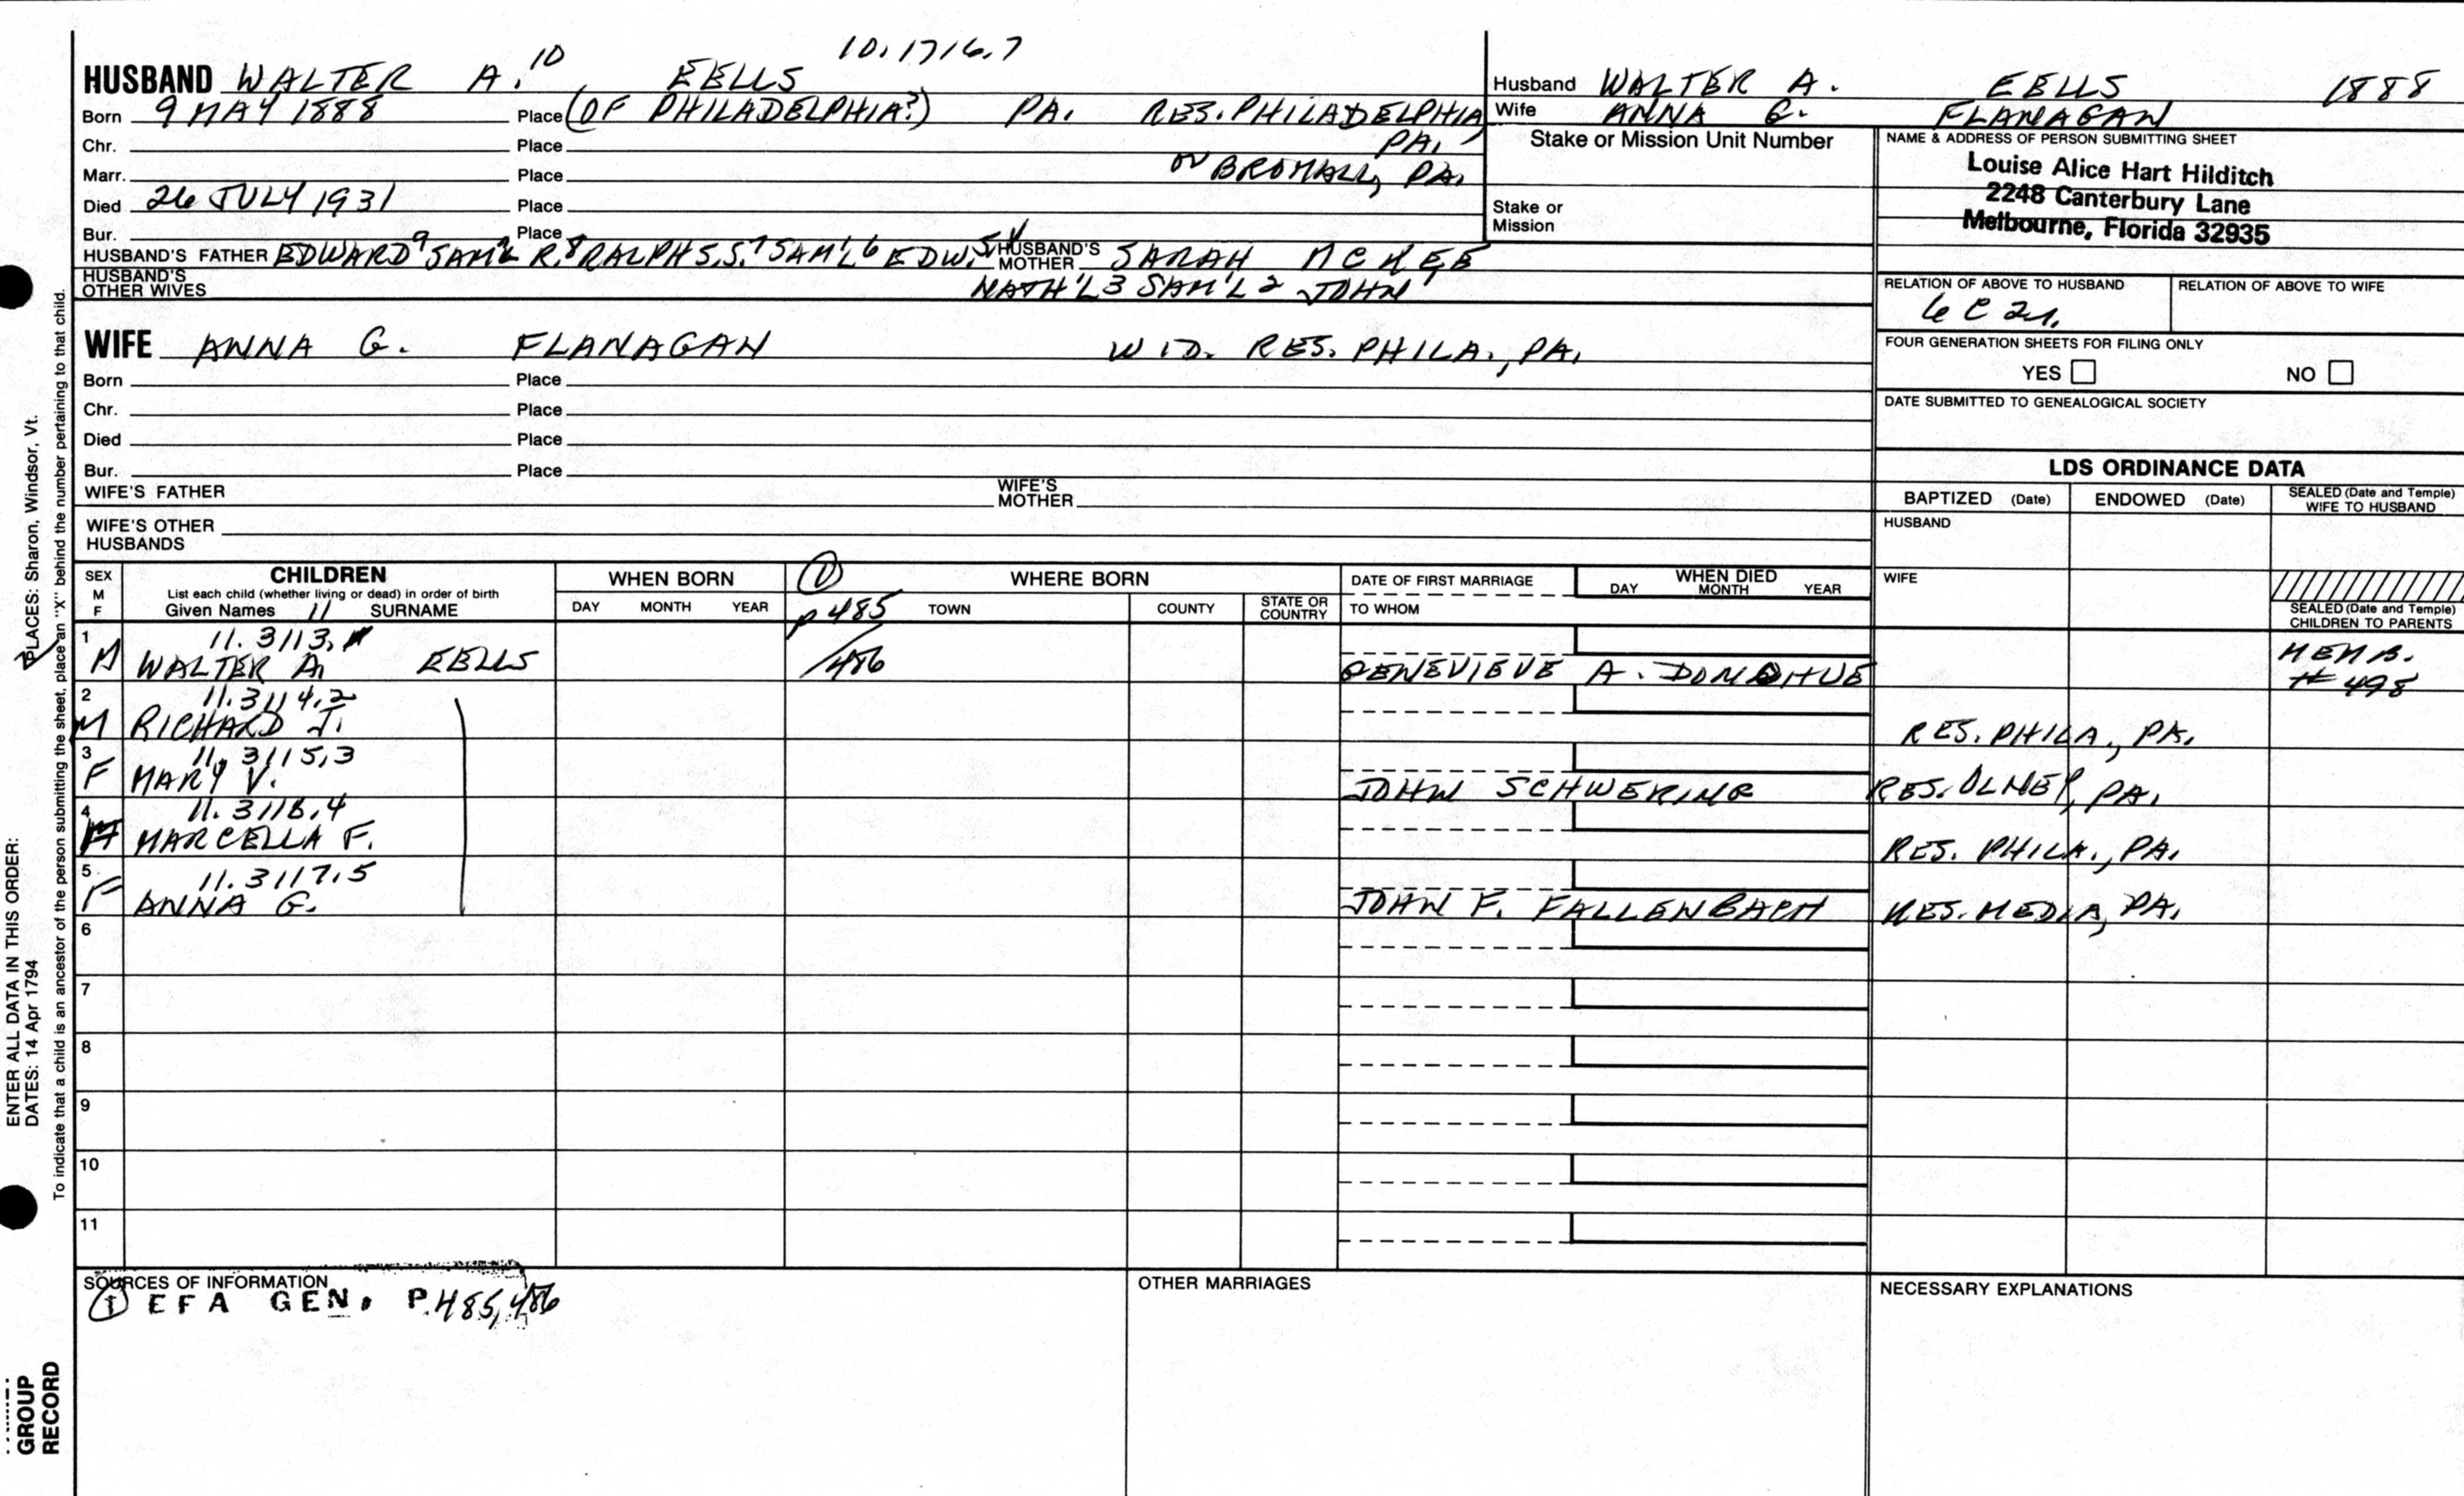 10.1716.7
HUSBAND WALTER A.10 EELLS
Born 9 MAY 1888 Place (OF PHILADELPHIA?) PA. RES. PHILADELPHIA
PA.
Chr. Place
Marr. Place or BROMALL, PA.
Died 26 JULY 1931 Place
Bur. Place
HUSBAND'S FATHER EDWARD9 SAM'L R.8 RALPH S.S.7 SAM'L6 EDW.5 HUSBAND'S MOTHER SARAH MCKEE
HUSBAND'S OTHER WIVES NATH'L3 SAM'L2 JOHN1
Husband WALTER A. EELLS 1888
Wife ANNA G. FLANAGAN
Stake or Mission Unit Number
Stake or
Mission
NAME & ADDRESS OF PERSON SUBMITTING SHEET
Louise Alice Hart Hilditch
2248 Canterbury Lane
Melbourne, Florida 32935
RELATION OF ABOVE TO HUSBAND RELATION OF ABOVE TO WIFE
6 C 2r.
FOUR GENERATION SHEETS FOR FILING ONLY
YES NO
DATE SUBMITTED TO GENEALOGICAL SOCIETY
WIFE ANNA G. FLANAGAN WID. RES. PHILA., PA.
Born Place
Chr. Place
Died Place
Bur. Place
WIFE'S FATHER WIFE'S MOTHER
WIFE'S OTHER
HUSBANDS
LDS ORDINANCE DATA
BAPTIZED (Date) ENDOWED (Date) SEALED (Date and Temple) WIFE TO HUSBAND
HUSBAND
WIFE
SEALED (Date and Temple)
CHILDREN TO PARENTS
SEX M F
CHILDREN
List each child (whether living or dead) in order of birth
Given Names 11 SURNAME
WHEN BORN
DAY MONTH YEAR
① p 485/486
WHERE BORN
TOWN COUNTY STATE OR COUNTRY
DATE OF FIRST MARRIAGE
TO WHOM
WHEN DIED
DAY MONTH YEAR
1 11.3113.1
M WALTER A. EELLS GENEVIEVE A. DONOHUE MEMB. # 498
2 11.3114.2
M RICHARD J. RES. PHILA., PA.
3 11.3115.3
F MARY V. JOHN SCHWERING RES. OLNEY, PA.
4 11.3116.4
F MARCELLA F. RES. PHILA., PA.
5 11.3117.5
F ANNA G. JOHN F. FALLENBACH RES. MEDIA, PA.
6
7
8
9
10
11
SOURCES OF INFORMATION
① EFA GEN. P. 485,486
OTHER MARRIAGES
NECESSARY EXPLANATIONS
ENTER ALL DATA IN THIS ORDER:
DATES: 14 Apr 1794
PLACES: Sharon, Windsor, Vt.
To indicate that a child is an ancestor of the person submitting the sheet, place an "X" behind the number pertaining to that child.
GROUP
RECORD